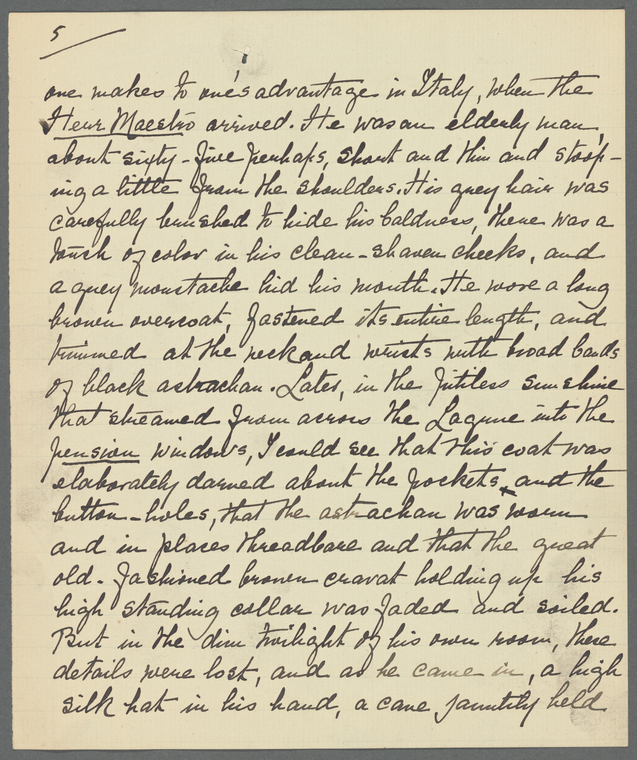 5
one makes to one's advantage in Italy, when the
Herr Maestro arrived. He was an elderly man,
about sixty-five perhaps, short and thin and stoop-
ing a little from the shoulders. His grey hair was
carefully brushed to hide his baldness, there was a
touch of color in his clean-shaven cheeks, and
a grey moustache hid his mouth. He wore a long
brown overcoat, fastened its entire length, and
trimmed at the neck and wrists with broad bands
of black astrachan. Later, in the pitiless sunshine
that streamed from across the Lagune into the
pension windows, I could see that this coat was
elaborately darned about the pockets and the
button-holes, that the astrachan was worn
and in places threadbare and that the great
old-fashioned brown cravat holding up his
high standing collar was faded and soiled.
But in the dim twilight of his own room, these
details were lost, and as he came in, a high
silk hat in his hand, a cane jauntily held